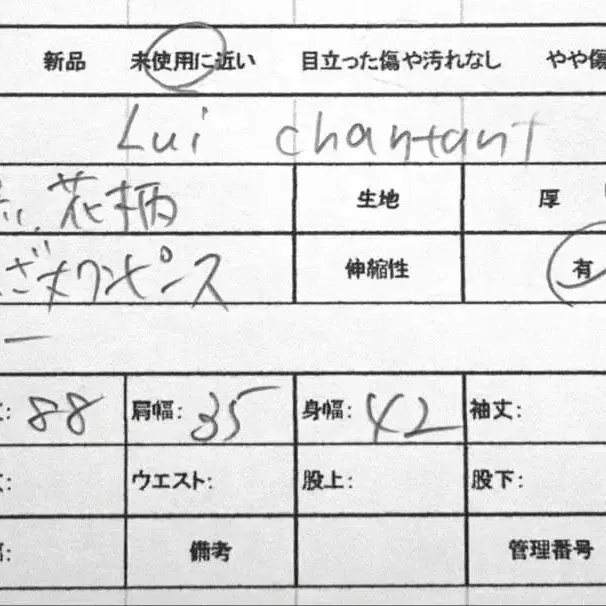 新品 未使用に近い 目立った傷や汚れなし やや傷
Lui chantant
花柄 生地 厚
ざ丈ワンピース 伸縮性 有
ー
: 88 肩幅: 35 身幅: 42 袖丈:
: ウエスト: 股上: 股下:
: 備考 管理番号